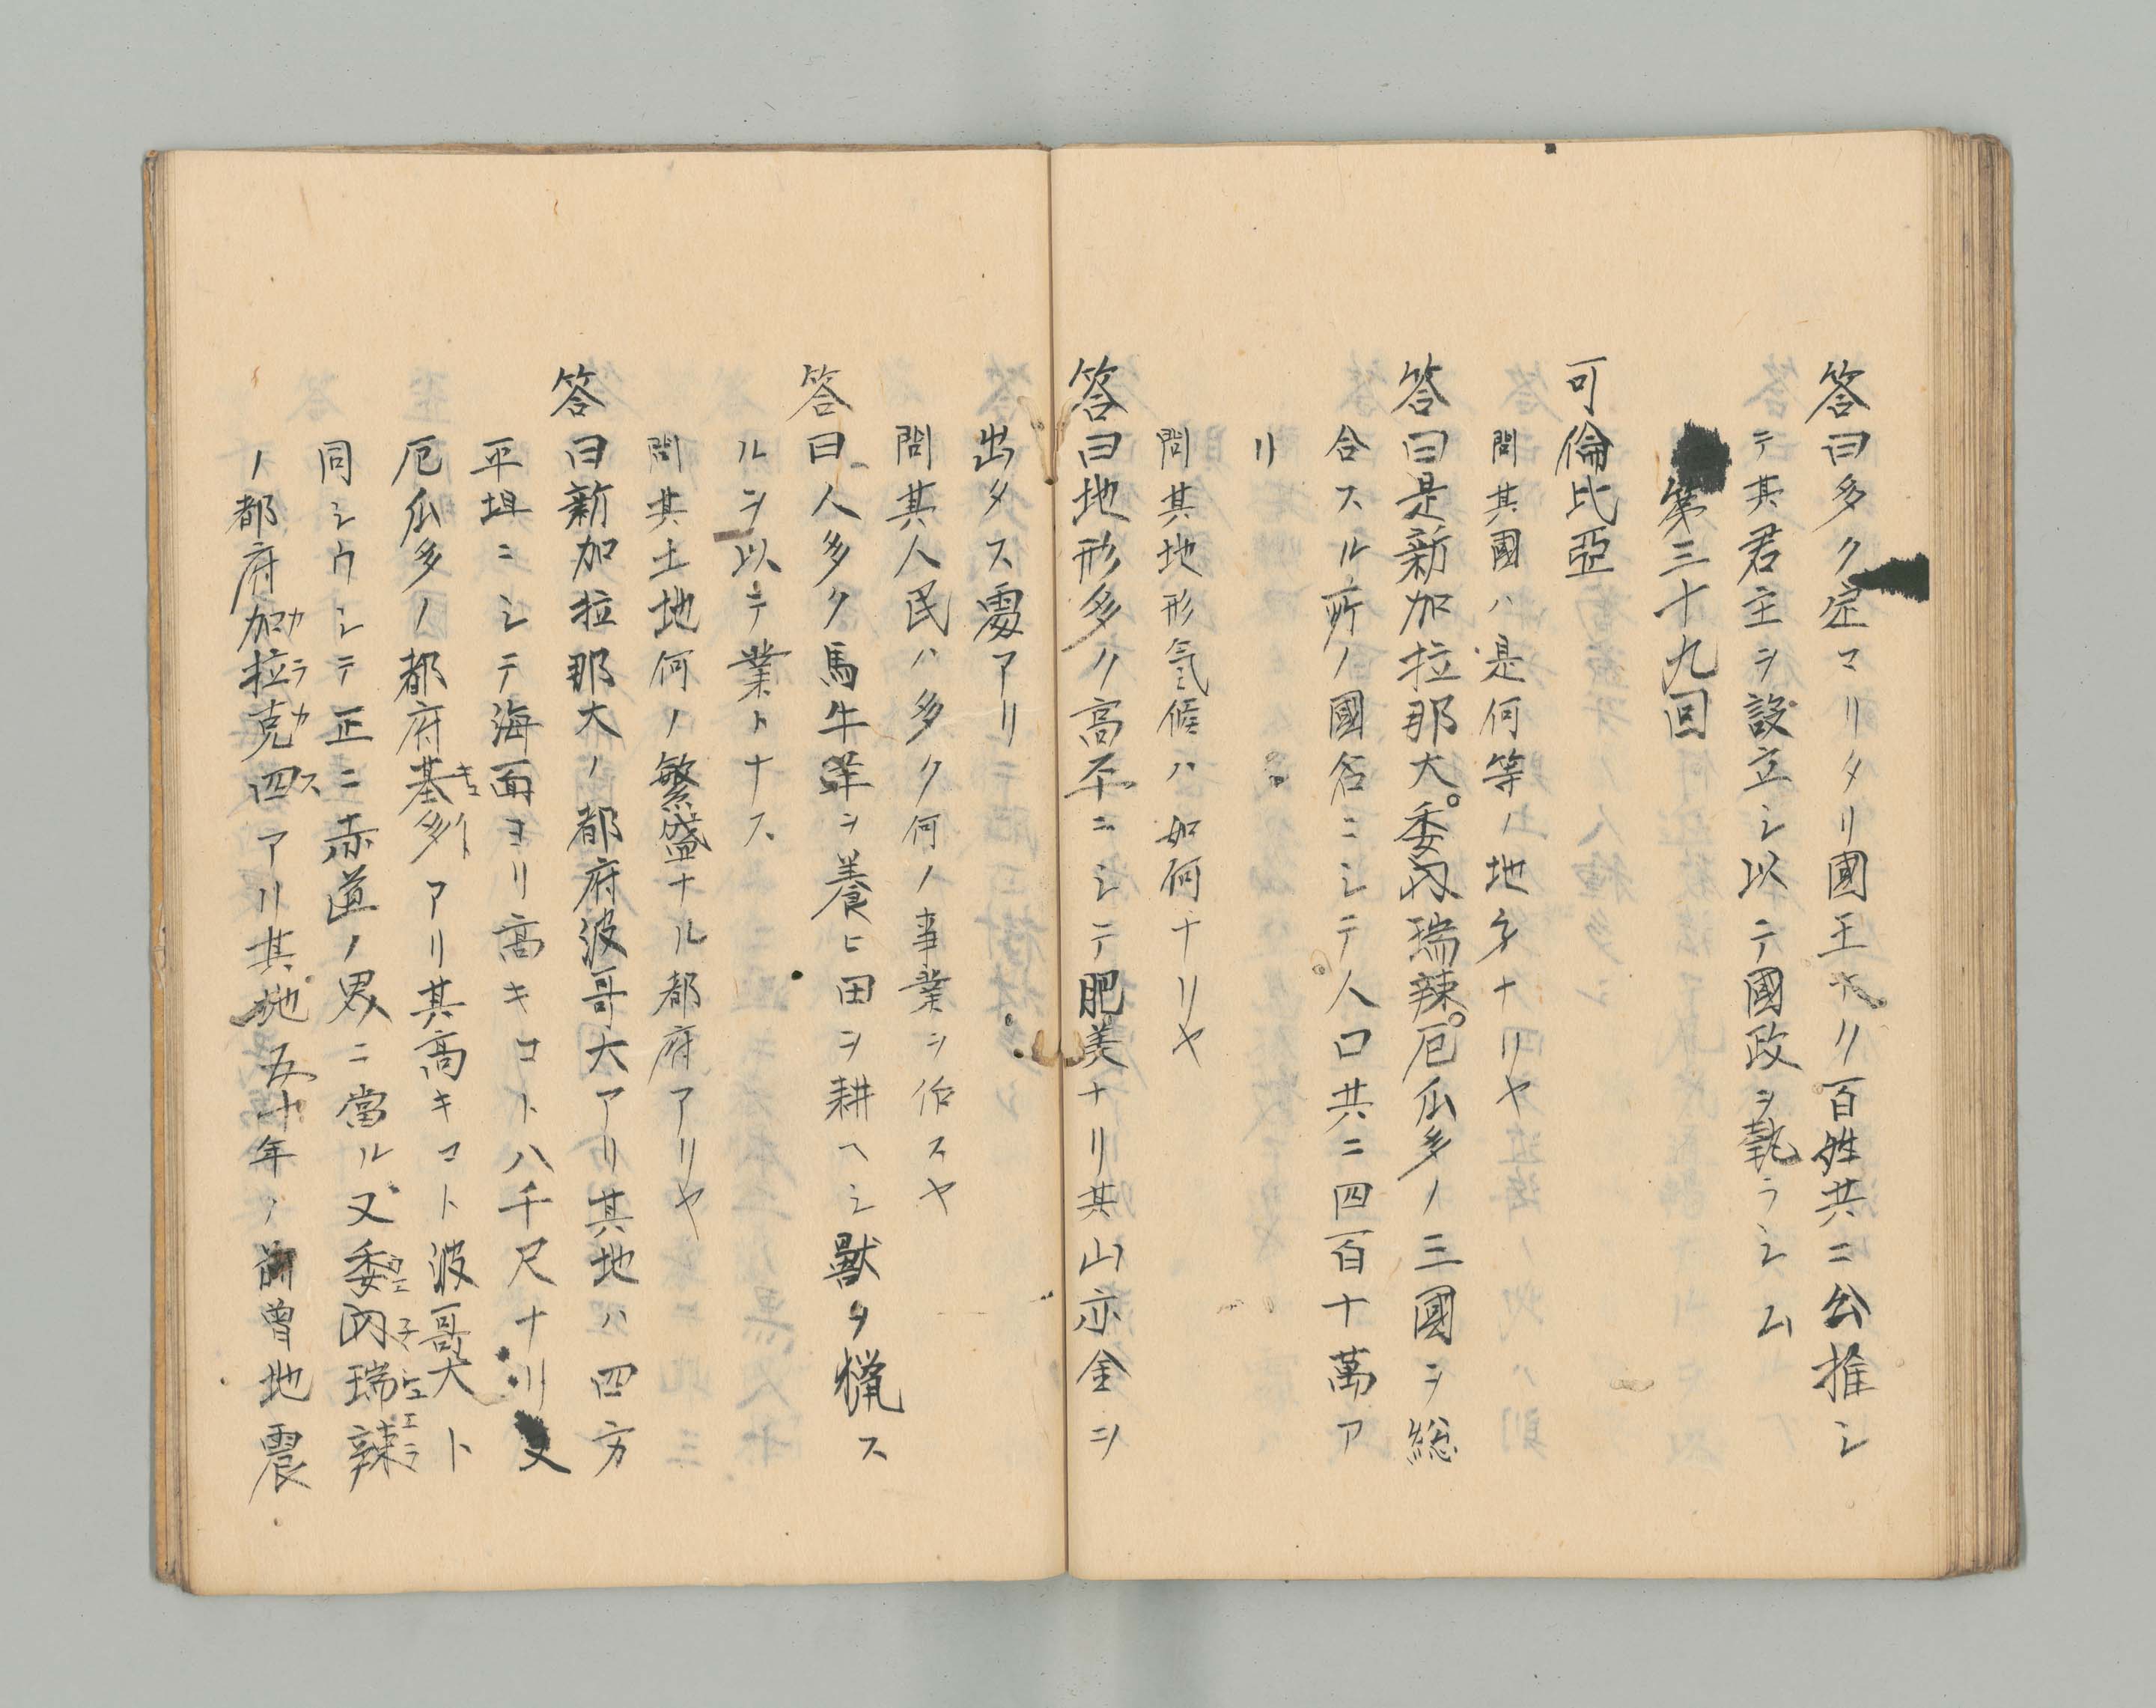 答曰多ク定マリタリ國王ナク百姓共ニ公推シ
テ其君主ヲ設立シ以テ國政ヲ執ラシム
第三十九回
可倫比亞
問其國ハ是何等ノ地方ナリヤ
答曰是新加拉那大。委内瑞辣。厄瓜多ノ三國ヲ総
合スル所ノ國名ニシテ人口共ニ四百十萬ア
リ
問其地形氣候ハ如何ナリヤ
答曰地形多ク高平ニシテ肥美ナリ其山亦金ヲ
出タス處アリ
問其人民ハ多ク何ノ事業ヲ作スヤ
答曰人多ク馬牛羊ヲ養ヒ田ヲ耕ヘシ獸タ猟ス
ルヲ以テ業トナス
問其土地何ノ繁盛ナル都府アリヤ
答曰新加拉那大ノ都府波哥大アリ其地ハ四方
平坦ニシテ海面ヨリ高キコト八千尺ナリ又
厄瓜多ノ都府基多アリ其高キコト波哥大ト
同シウシテ正ニ赤道ノ界ニ當ル又委内瑞辣
ノ都府加拉克四アリ其地五十年ノ前曽地震